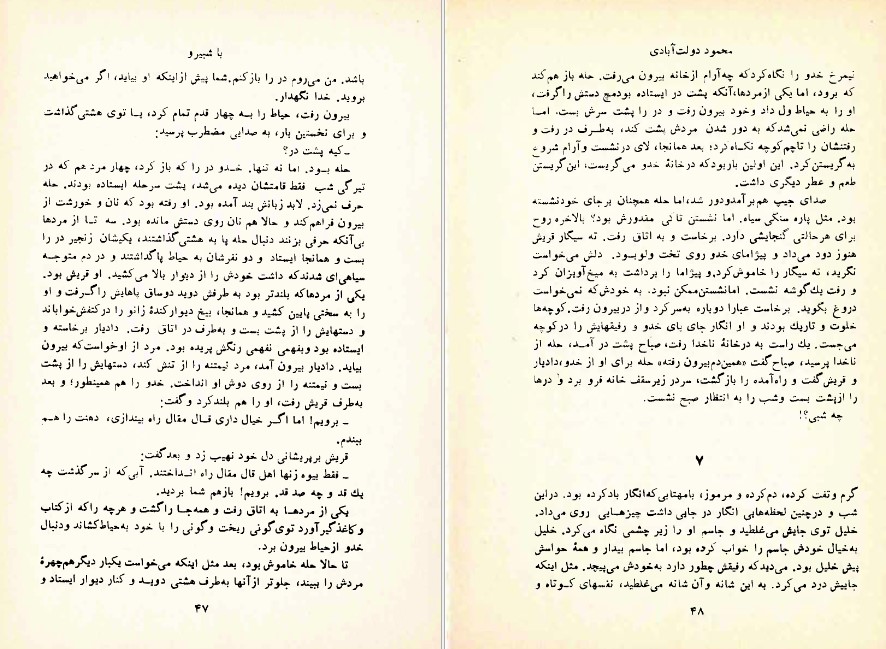 با شبیرو
باشد. من می‌روم در را بازکنم. شما پیش ازاینکه او بیاید، اگر می‌خواهید
بروید. خدا نگهدار.
بیرون رفت، حیاط را به چهار قدم تمام کرد، پا توی هشتی‌گذاشت
و برای نخستین بار، به صدایی مضطرب پرسید:
ـ کیه پشت در؟
حله بود. اما نه تنها. خدو در را که باز کرد، چهار مرد هم که در
تیرگی شب فقط قامتشان دیده می‌شد، پشت سرحله ایستاده بودند. حله
حرف نمی‌زد. لابد زبانش بند آمده بود. او رفته بود که نان و خورشت از
بیرون فراهم‌کند و حالا هم نان روی دستش مانده بود. سه تا از مردها
بی‌آنکه حرفی بزنند دنبال حله پا به هشتی‌گذاشتند، یکیشان زنجیر در را
بست و همانجا ایستاد و دو نفرشان به حیاط پاگذاشتند و در دم متوجه
سیاهی‌ای شدندکه داشت خودش را از دیوار بالا می‌کشید. او قریش بود.
یکی از مردهاکه بلندتر بود به طرفش دوید دوساق پاهایش راگرفت و او
را به سختی پایین کشید و همانجا، بیخ دیوارکندهٔ زانو را درکتفش‌خواباند
و دستهایش را از پشت بست و به‌طرف در اتاق رفت. دادیار برخاسته و
ایستاده بود وبفهمی نفهمی رنگش پریده بود. مرد از اوخواست‌که بیرون
بیاید. دادیار بیرون آمد، مرد نیمتنه را از تنش کند، دستهایش را از پشت
بست و نیمتنه را از روی دوش او انداخت. خدو را هم همینطور؛ و بعد
به‌طرف قریش رفت، او را هم بلندکرد و گفت:
ـ برویم! اما اگر خیال داری قال مقال راه بیندازی، دهنت را هم
ببندم.
قریش برپریشانی دل خود نهیب زد و بعدگفت:
ـ فقط بیوه زنها اهل قال مقال راه انداختند. آبی‌که از سرگذشت چه
یك قد و چه صد قد. برویم! بازهم شما بردید.
یکی از مردهــا به اتاق رفت و همه‌جــا راگشت و هرچه راکه ازکتاب
وکاغذگیرآورد توی‌گونی ریخت وگونی را با خود به‌حیاط‌کشاند ودنبال
خدو ازحیاط بیرون برد.
تا حالا حله خاموش بود، بعد مثل اینکه می‌خواست یکبار دیگرهم‌چهرهٔ
مردش را ببیند، جلوتر ازآنها به‌طرف هشتی دوید و کنار دیوار ایستاد و
۴۷
محمود دولت‌آبادی
نیمرخ خدو را نگاه‌کردکه چه‌آرام ازخانه بیرون می‌رفت. حله باز هم‌کند
که برود، اما یکی ازمردها،آنکه پشت در ایستاده بودمچ دستش راگرفت،
او را به حیاط ول داد وخود بیرون رفت و در را پشت سرش بست. امــا
حله راضی نمی‌شدکه به دور شدن مردش پشت کند، به‌طرف در رفت و
رفتنشان را تاچم‌کوچه نگاه‌کرد؛ بعد همانجا، لای درنشست وآرام شروع
به‌گریستن‌کرد. این اولین باربودکه درخانهٔ خدو می‌گریست، این‌گریستن
طعم و عطر دیگری داشت.
صدای جیپ هم‌برآمدودور شد،اما حله همچنان برجای خودنشسته
بود. مثل پاره سنگی سیاه. اما نشستن تاکی مقدورش بود؟ بالاخره روح
برای هرحالتی گنجایشی دارد. برخاست و به اتاق رفت. ته سیگار قریش
هنوز دود می‌داد و پیژامای خدو روی تخت ولوبود. دلش می‌خواست
نگرید، ته سیگار را خاموش‌کرد.و پیژاما را برداشت به میخ‌آویزان کرد
و رفت یك‌گوشه نشست. امانشستن‌ممکن نبود. به خودش‌که نمی‌خواست
دروغ بگوید. برخاست عبارا دوباره به‌سرکرد واز دربیرون رفت.کوچه‌ها
خلوت و تاریك بودند و او انگار جای پای خدو و رفیقهایش را درکوچه
می‌جست. یك راست به درخانهٔ ناخدا رفت، صباح پشت در آمد، حله از
ناخدا پرسید، صباح‌گفت «همین‌دم‌بیرون رفته» حله برای او از خدو،دادیار
و قریش‌گفت و راه‌آمده را بازگشت، سردر زیرسقف خانه فرو برد و درها
را ازپشت بست وشب را به انتظار صبح نشست.
چه شبی؟!
۷
گرم وتفت کرده، دم‌کرده و مرموز، بامهتابی‌که‌انگار بادکرده بود. دراین
شب و درچنین لحظه‌هایی انگار در جایی داشت چیزهــایی روی می‌داد.
خلیل توی جایش می‌غلطید و جاسم او را زیر چشمی نگاه می‌کرد. خلیل
به‌خیال خودش جاسم را خواب کرده بود، اما جاسم بیدار و همهٔ حواسش
پیش خلیل بود. می‌دیدکه رفیقش چطور دارد به‌خودش می‌پیچد. مثل اینکه
جاییش درد می‌کرد. به این شانه وآن شانه می‌غلطید، نفسهای کوتاه و
۴۸